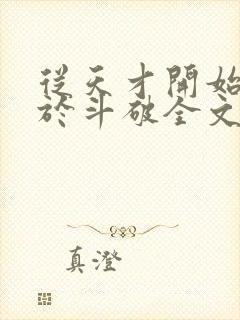 從天才開始
於斗破全文
真澄